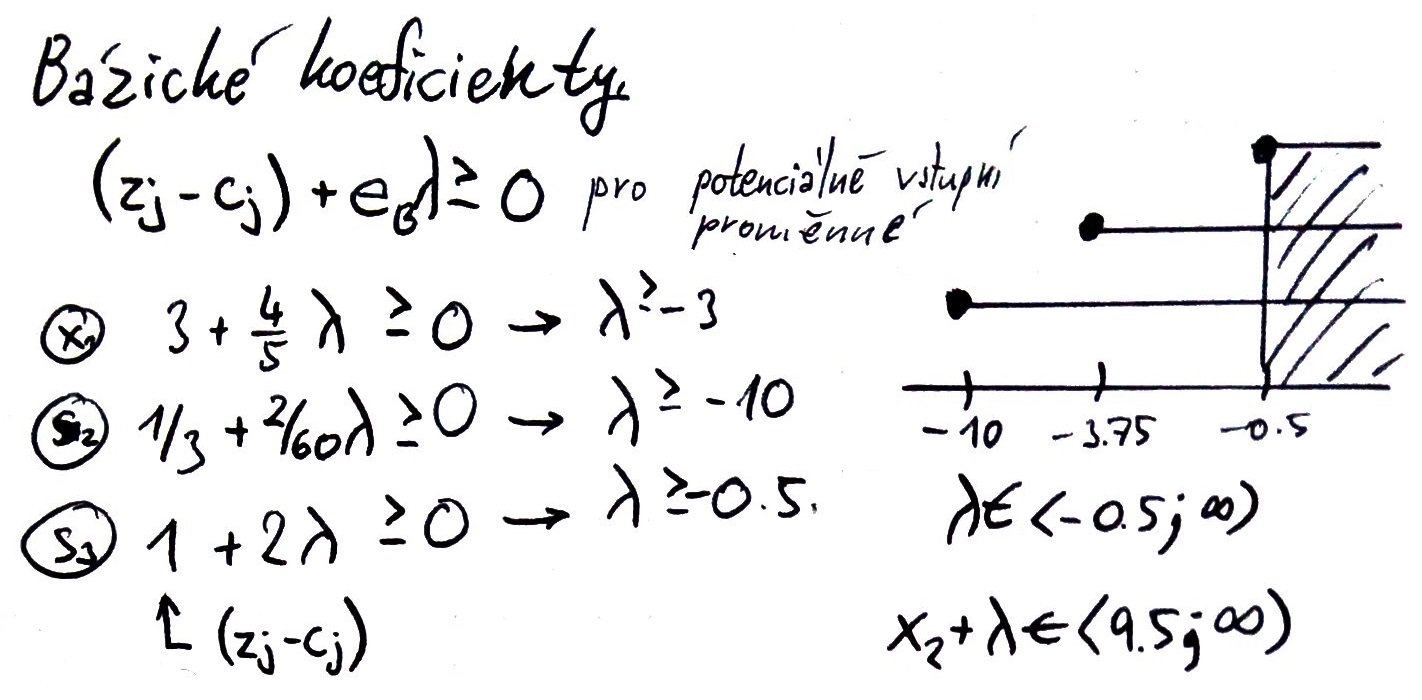 Bázické koeficienty.
(zj - cj) + eBλ ≥ 0 pro potenciálně vstupní
proměnné
x1 3 + 4/5 λ ≥ 0 → λ ≥ -3
s2 1/3 + 2/60λ ≥ 0 → λ ≥ -10
s3 1 + 2λ ≥ 0 → λ ≥ -0.5.
↑ (zj - cj)
-10 -3.75 -0.5
λ ∈ <-0.5; ∞)
x2 + λ ∈ <9.5; ∞)